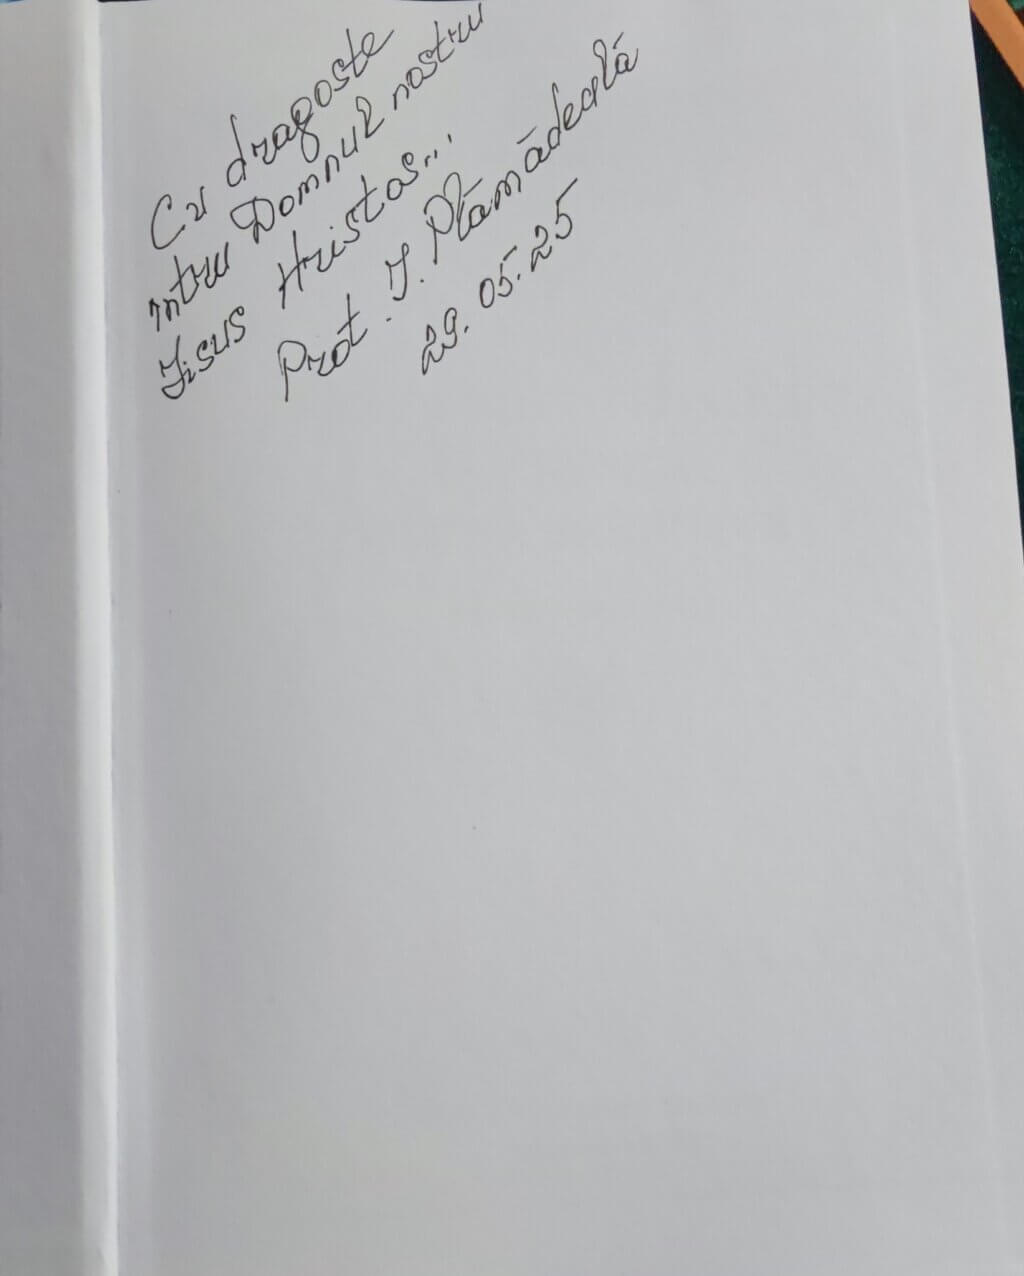 Cu dragoste
întru Domnul nostru
Iisus Hristos...
Prot. I. Plămădeală
29.05.25